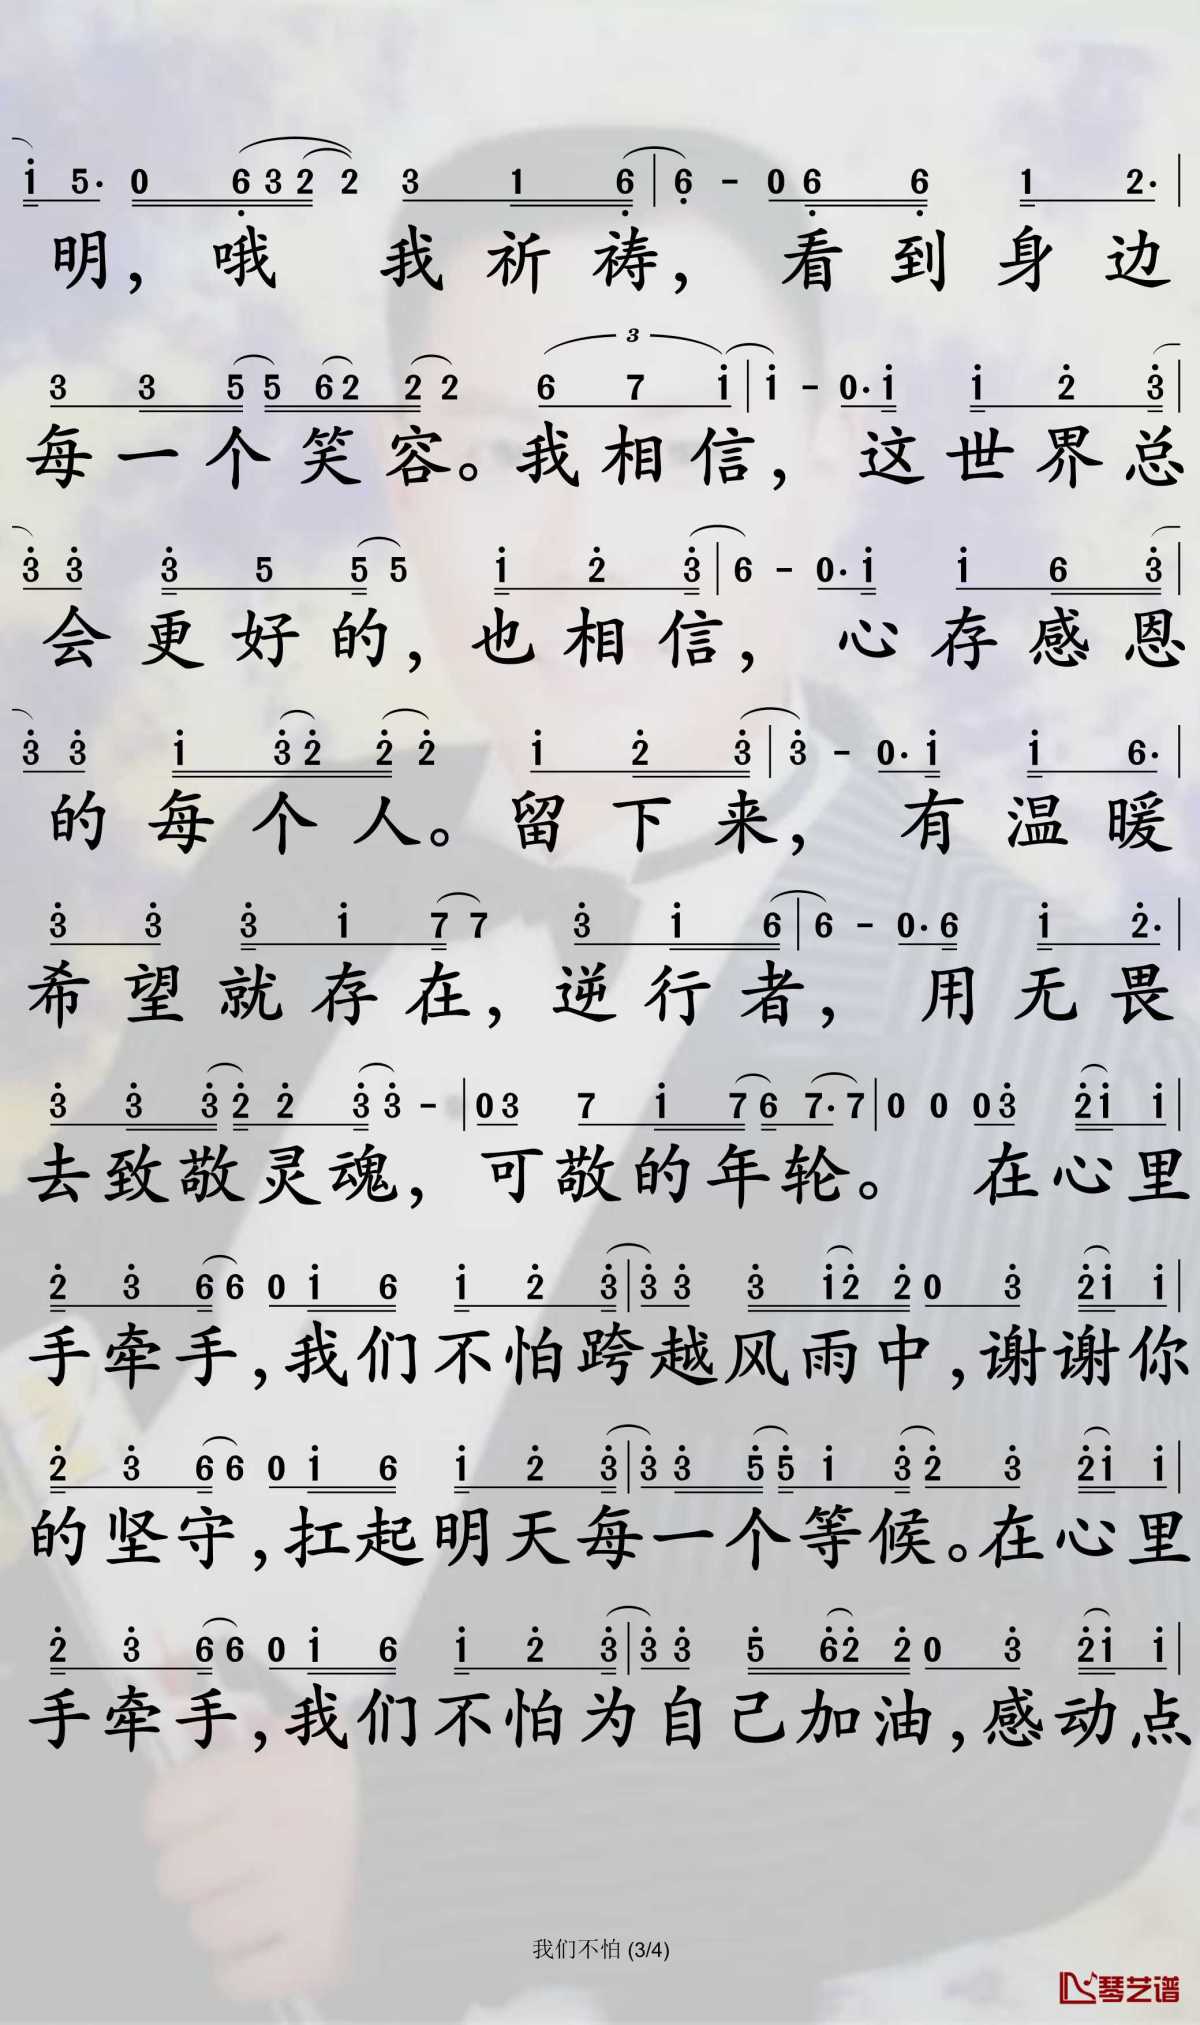 1 5· 0 6 3 2 2 3 1 6 | 6 - 0 6 6 1 2· |
明，哦 我祈祷，看到身边
3 3 5 5 6 2 2 2 3 6 7 1 | 1 - 0· 1 1 2 3 |
每一个笑容。我相信，这世界总
3 3 3 5 5 5 1 2 3 | 6 - 0· 1 1 6 3 |
会更好的，也相信，心存感恩
3 3 1 3 2 2 2 1 2 3 | 3 - 0· 1 1 6· |
的每个人。留下来，有温暖
3 3 3 1 7 7 3 1 6 | 6 - 0· 6 1 2· |
希望就存在，逆行者，用无畏
3 3 3 2 2 3 3 - | 0 3 7 1 7 6 7· 7 | 0 0 0 3 2 1 1 |
去致敬灵魂，可敬的年轮。 在心里
2 3 6 6 0 1 6 1 2 3 | 3 3 3 1 2 2 0 3 2 1 1 |
手牵手，我们不怕跨越风雨中，谢谢你
2 3 6 6 0 1 6 1 2 3 | 3 3 5 5 1 3 2 3 2 1 1 |
的坚守，扛起明天每一个等候。在心里
2 3 6 6 0 1 6 1 2 3 | 3 3 5 6 2 2 0 3 2 1 1 |
手牵手，我们不怕为自己加油，感动点
我们不怕 (3/4)
琴艺谱